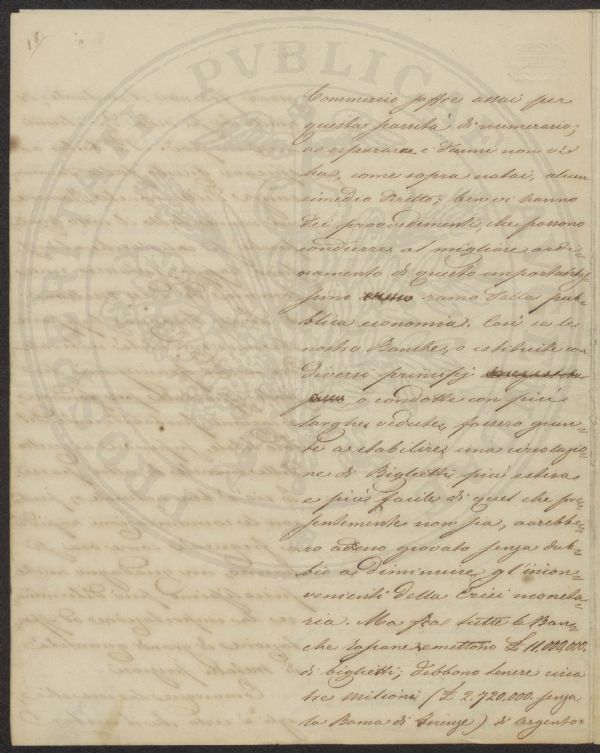 18
Commercio soffre assai per
questa scarsità di numerario;
a riparare i danni non vi
ha, come sopra notai, alcun
rimedio diretto; ben vi hanno
dei provvedimenti che possono
condurre al migliore ordi=
namento di questo importantis=
simo ramo della pub=
blica economia. Così se le
nostre Banche, o istituite con
diversi principj
o condotte con più
larghe vedute, fossero giun=
te a stabilire una circolazio=
ne di Biglietti più estesa
e più facile di quel che pre=
sentemente non sia, avrebbe=
ro adesso giovato senza dub=
bio a diminuire gl'incon=
venienti della Crisi moneta=
ria. Ma fra tutte le Ban=
che toscane emettono £ 11,000,000.
di biglietti; debbono tenere circa
tre milioni (£ 2.720,000. senza
la Banca di Firenze) di argento
PROSPERITATI PVBLICAE